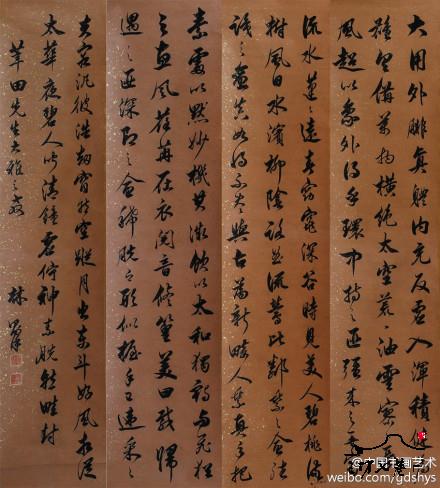 大用外腓真體內充反虛入渾積健為
雄具備萬物橫絕太空荒〻油雲寥〻長
風超以象外得其環中持之匪強來之無
流水蓬〻遠春窈窕深谷時見美人碧桃滿
樹風日水濱柳陰路曲流鶯比鄰乘之愈往
識之愈真如將不盡與古為新畸人乘真手把
素處以默妙機其微飲以太和獨鶴與飛猶
之惠風荏苒在衣閱音修篁美曰載歸
遇之匪深即之愈稀脫有形似握手已違采〻
夫容汎彼浩劫窅然空蹤月出東斗好風相從
太華夜碧人聞清鐘虛佇神素脫然畦封
莘田先生大雅之教
林則徐
@中国书画艺术
weibo.com/gdshys